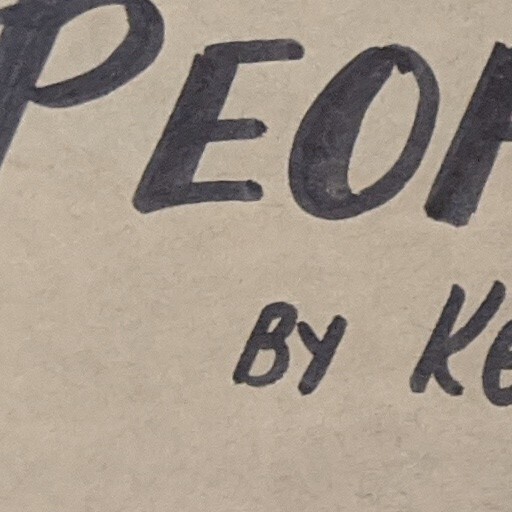 PEOP
BY Ke